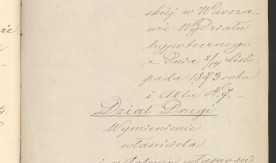 skiej w Warsza-
wie Wydziału
hypotecznego
z Dnia 2/14 Listo
pada 1893 roku
i Akta N. 7.
Dział Drugi
Wymienienie
właściciela
i ustalenie własności